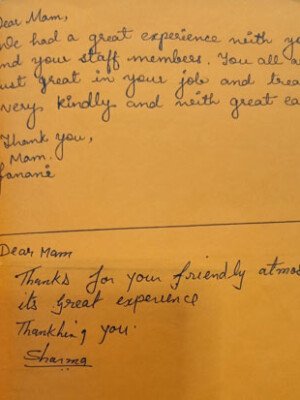 Dear Mam,
We had a great experience neith yo
nd your staff members. You all a
ust great in your job and trea
very kindly and neith great ca
Thank you,
Mam.
Dear Mam
Thanks for your friendly atmos
its great experience
Thankhing you.
Sharma